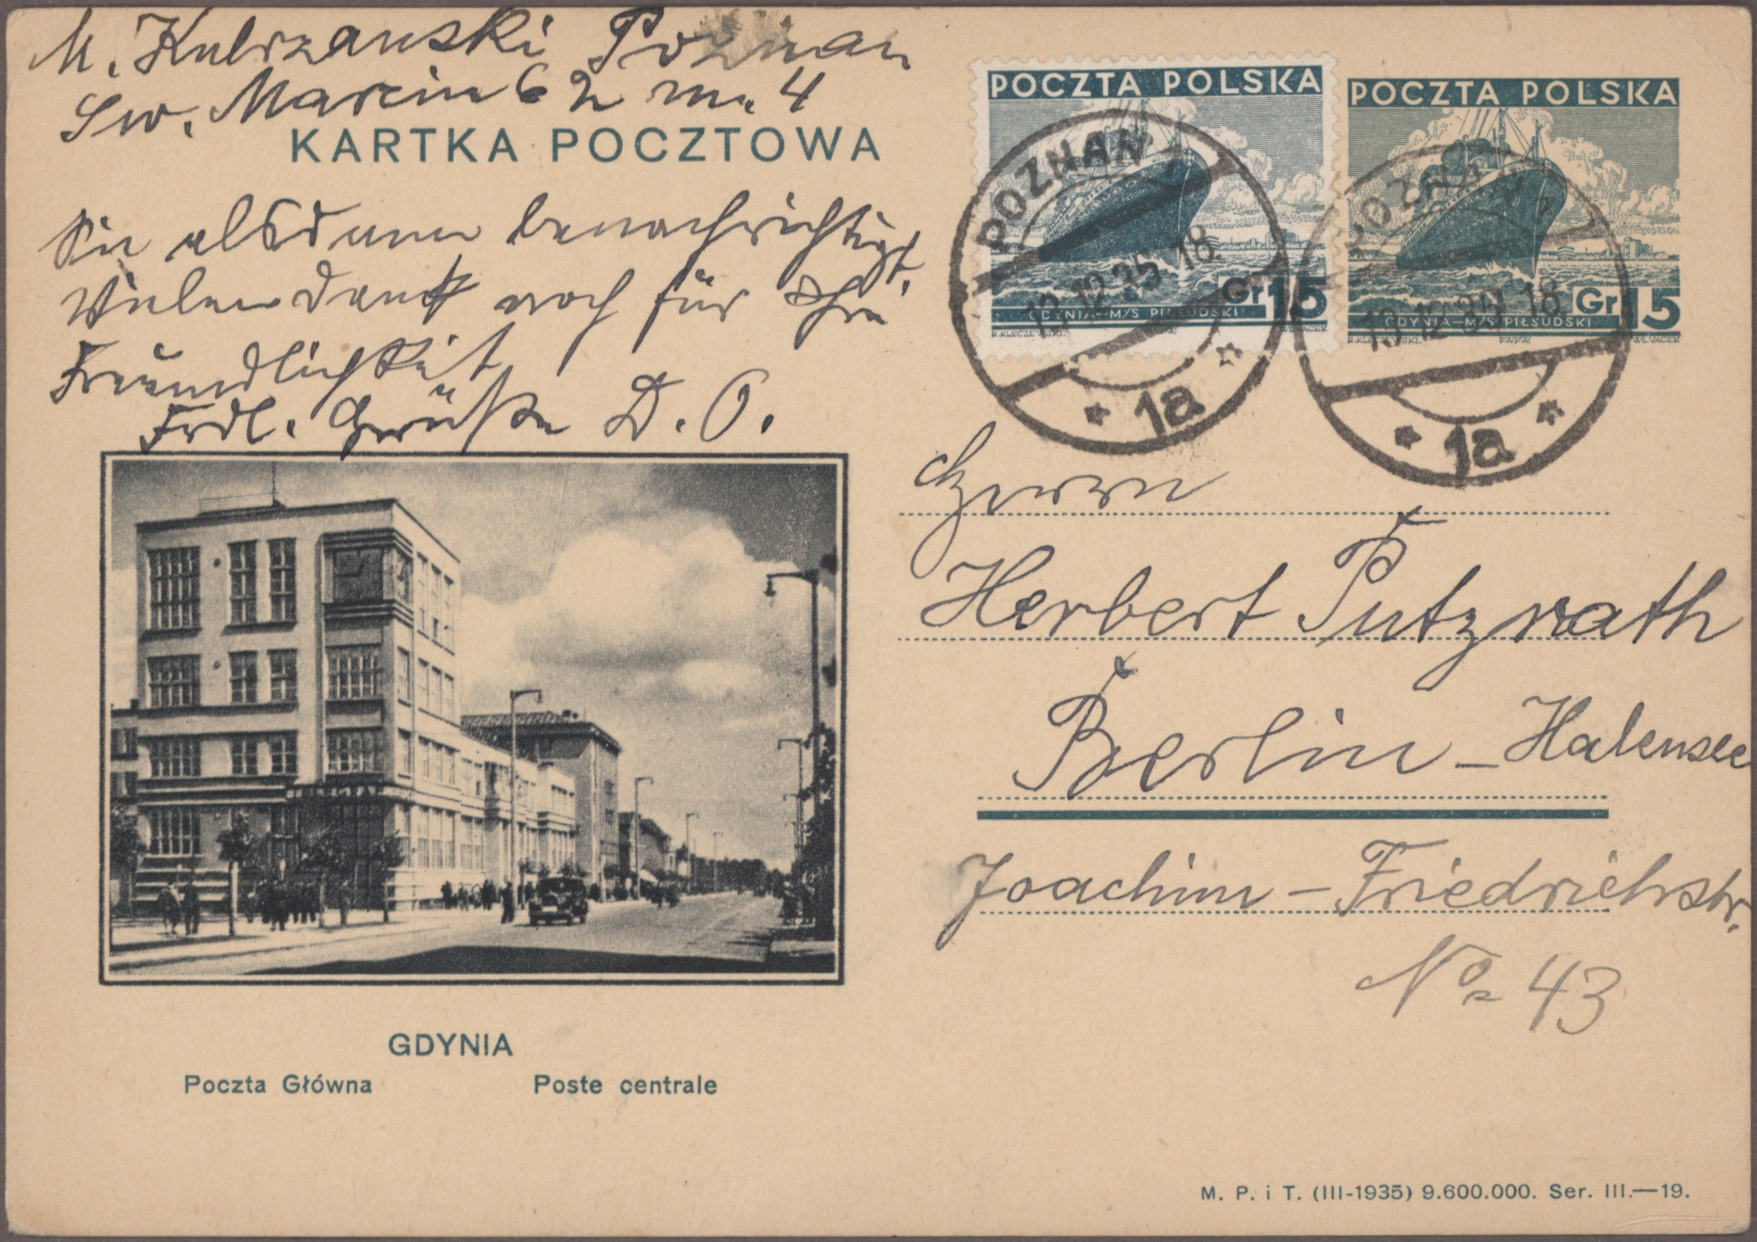 M. Kubrzanski Poznan
Sw. Marcin 62 m. 4
KARTKA POCZTOWA
Sie alsdann benachrichtigt.
Vielen Dank noch für Ihre
Freundlichkeit
Frdl. Grüße D. O.
POCZTA POLSKA
GDYNIA–M/S PIŁSUDSKI
Gr 15
POCZTA POLSKA
GDYNIA–M/S PIŁSUDSKI
Gr 15
POZNAŃ
12.12.35 18
* 1a *
POZNAŃ
18
* 1a *
Herrn
Herbert Putzrath
Berlin – Halensee
Joachim – Friedrichstr.
No 43
GDYNIA
Poczta Główna Poste centrale
M. P. i T. (III-1935) 9.600.000. Ser. III.—19.